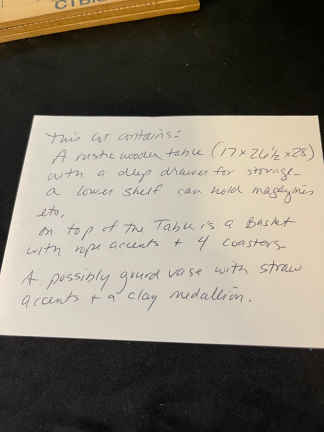 This lot contains:
A rustic wooden table (17 x 26½ x 28)
with a deep drawer for storage -
a lower shelf can hold magazines
etc.
on top of the Table is a Basket
with rope accents + 4 coasters.
A possibly gourd vase with straw
accents + a clay medallion.